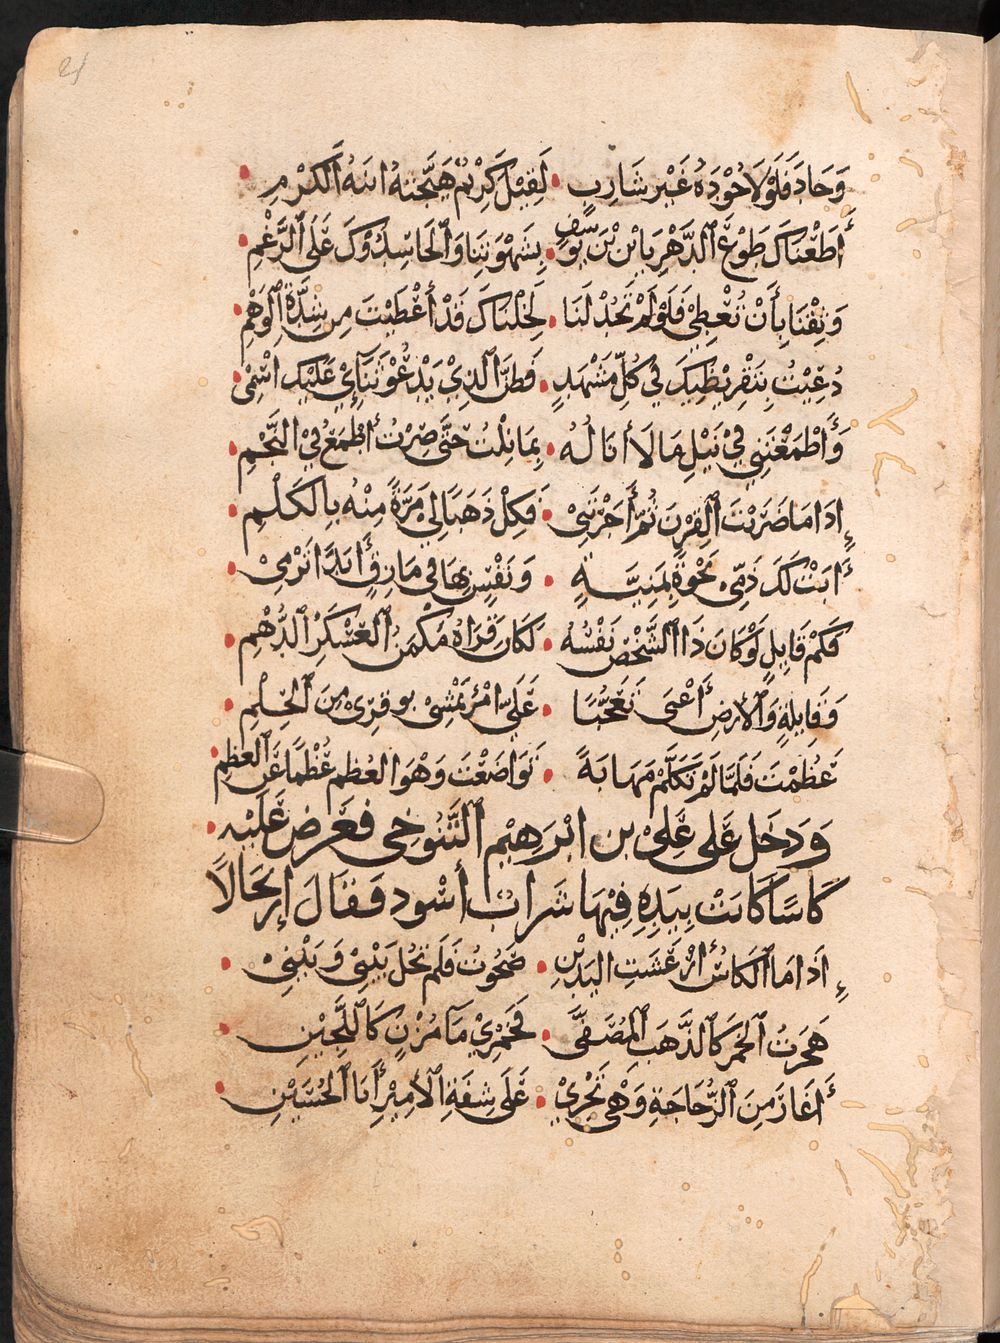 21
وَجَادَ فَلَوْلَا جُوْدُهُ غَيْرَ شَارِبٍ • لَقِيْلَ كَرِيْمٌ هَيَّجَتْهُ ابْنَةُ الْكَرْمِ •
أَطَعْنَاكَ طَوْعَ الدَّهْرِ يَا بْنَ بْنِ يُوْسُفٍ • بِشَهْوَتِنَا وَالْحَاسِدُوْكَ عَلَى الرَّغْمِ •
وَثِقْنَا بِأَنْ تُعْطِيْ فَلَوْ لَمْ تَجُدْ لَنَا • لَخِلْنَاكَ قَدْ أَعْطَيْتَ مِنْ شِدَّةِ الْوَهْمِ •
دُعِيْتُ بِتَقْرِيْظِيْكَ فِي كُلِّ مَشْهَدٍ • فَظَنَّ الَّذِيْ يَدْعُوْ ثَنَآئِيْ عَلَيْكَ اسْمِيْ •
وَأَطْمَعْتَنِيْ فِيْ نَيْلِ مَا لَا أَنَالُهُ • بِمَا نِلْتُ حَتَّى صِرْتُ أَطْمَعُ فِيْ النَّجْمِ •
إِذَا مَا ضَرَبْتَ الْقِرْنَ ثُمَّ أَجَزْتَنِيْ • فَكِلْ ذَهَبًا لِيْ مَرَّةً مِنْهُ بِالْكَلْمِ •
أَبَتْ لَكَ ذَمِّيْ نَخْوَةٌ يَمَنِيَّةٍ • وَنَفْسٍ بِهَا فِي مَازِقٍ أَبَدًا تَرْمِيْ •
فَكَمْ قَايِلٍ لَوْ كَانَ ذَا الشَّخْصِ نَفْسُهُ • لَكَانَ قَرَاهُ مَكْمَنَ الْعَسْكَرِ الدُّهْمِ •
وَقَايِلَةٍ وَالْأَرْضَ أَعْنَى تَعَجُّبًا • عَلَىَّ امْرُؤٌ يَمْشِىْ بوقْرِىْ مِنَ الْحِلْمِ •
عَظُمْتَ فَلَمَّا لَمْ تُكَلَّمْ مَهَابَةً • تَوَاضَعْتَ وَهْوَ الْعُظْمُ عُظْمًا عَنِ الْعُظْمِ •
وَدَخَلَ عَلَى عَلِيِّ بن ابْرَهِيْمِ التَّنُوْخِي فَعَرَضَ عَلَيْهِ •
كَاسًا كَانَتْ بِيَدِهِ فِيْهَا شَرَابٌ أَسْوَد فَقَالَ ارْتِجَالًا
إِذَا مَا الْكَاسُ أَرْعَشَتِ الْيَدَيْنِ • صَحَوْتُ فَلَمْ تَحُلْ بَيْنِيْ وَبَيْنِيْ •
هَجَرْتُ الْخَمْرَ كَالذَّهَبِ الْمُصَفَّى • فَخَمْرِيْ مَآءُ مُزْنٍ كَاللُّجَيْنِ •
أَغَارُ مِنَ الزُّجَاجَةِ وَهْيَ تَجْرِيْ • عَلَى شَفَةِ الْأَمِيْرِ أَبَا الْحُسَيْنِ •